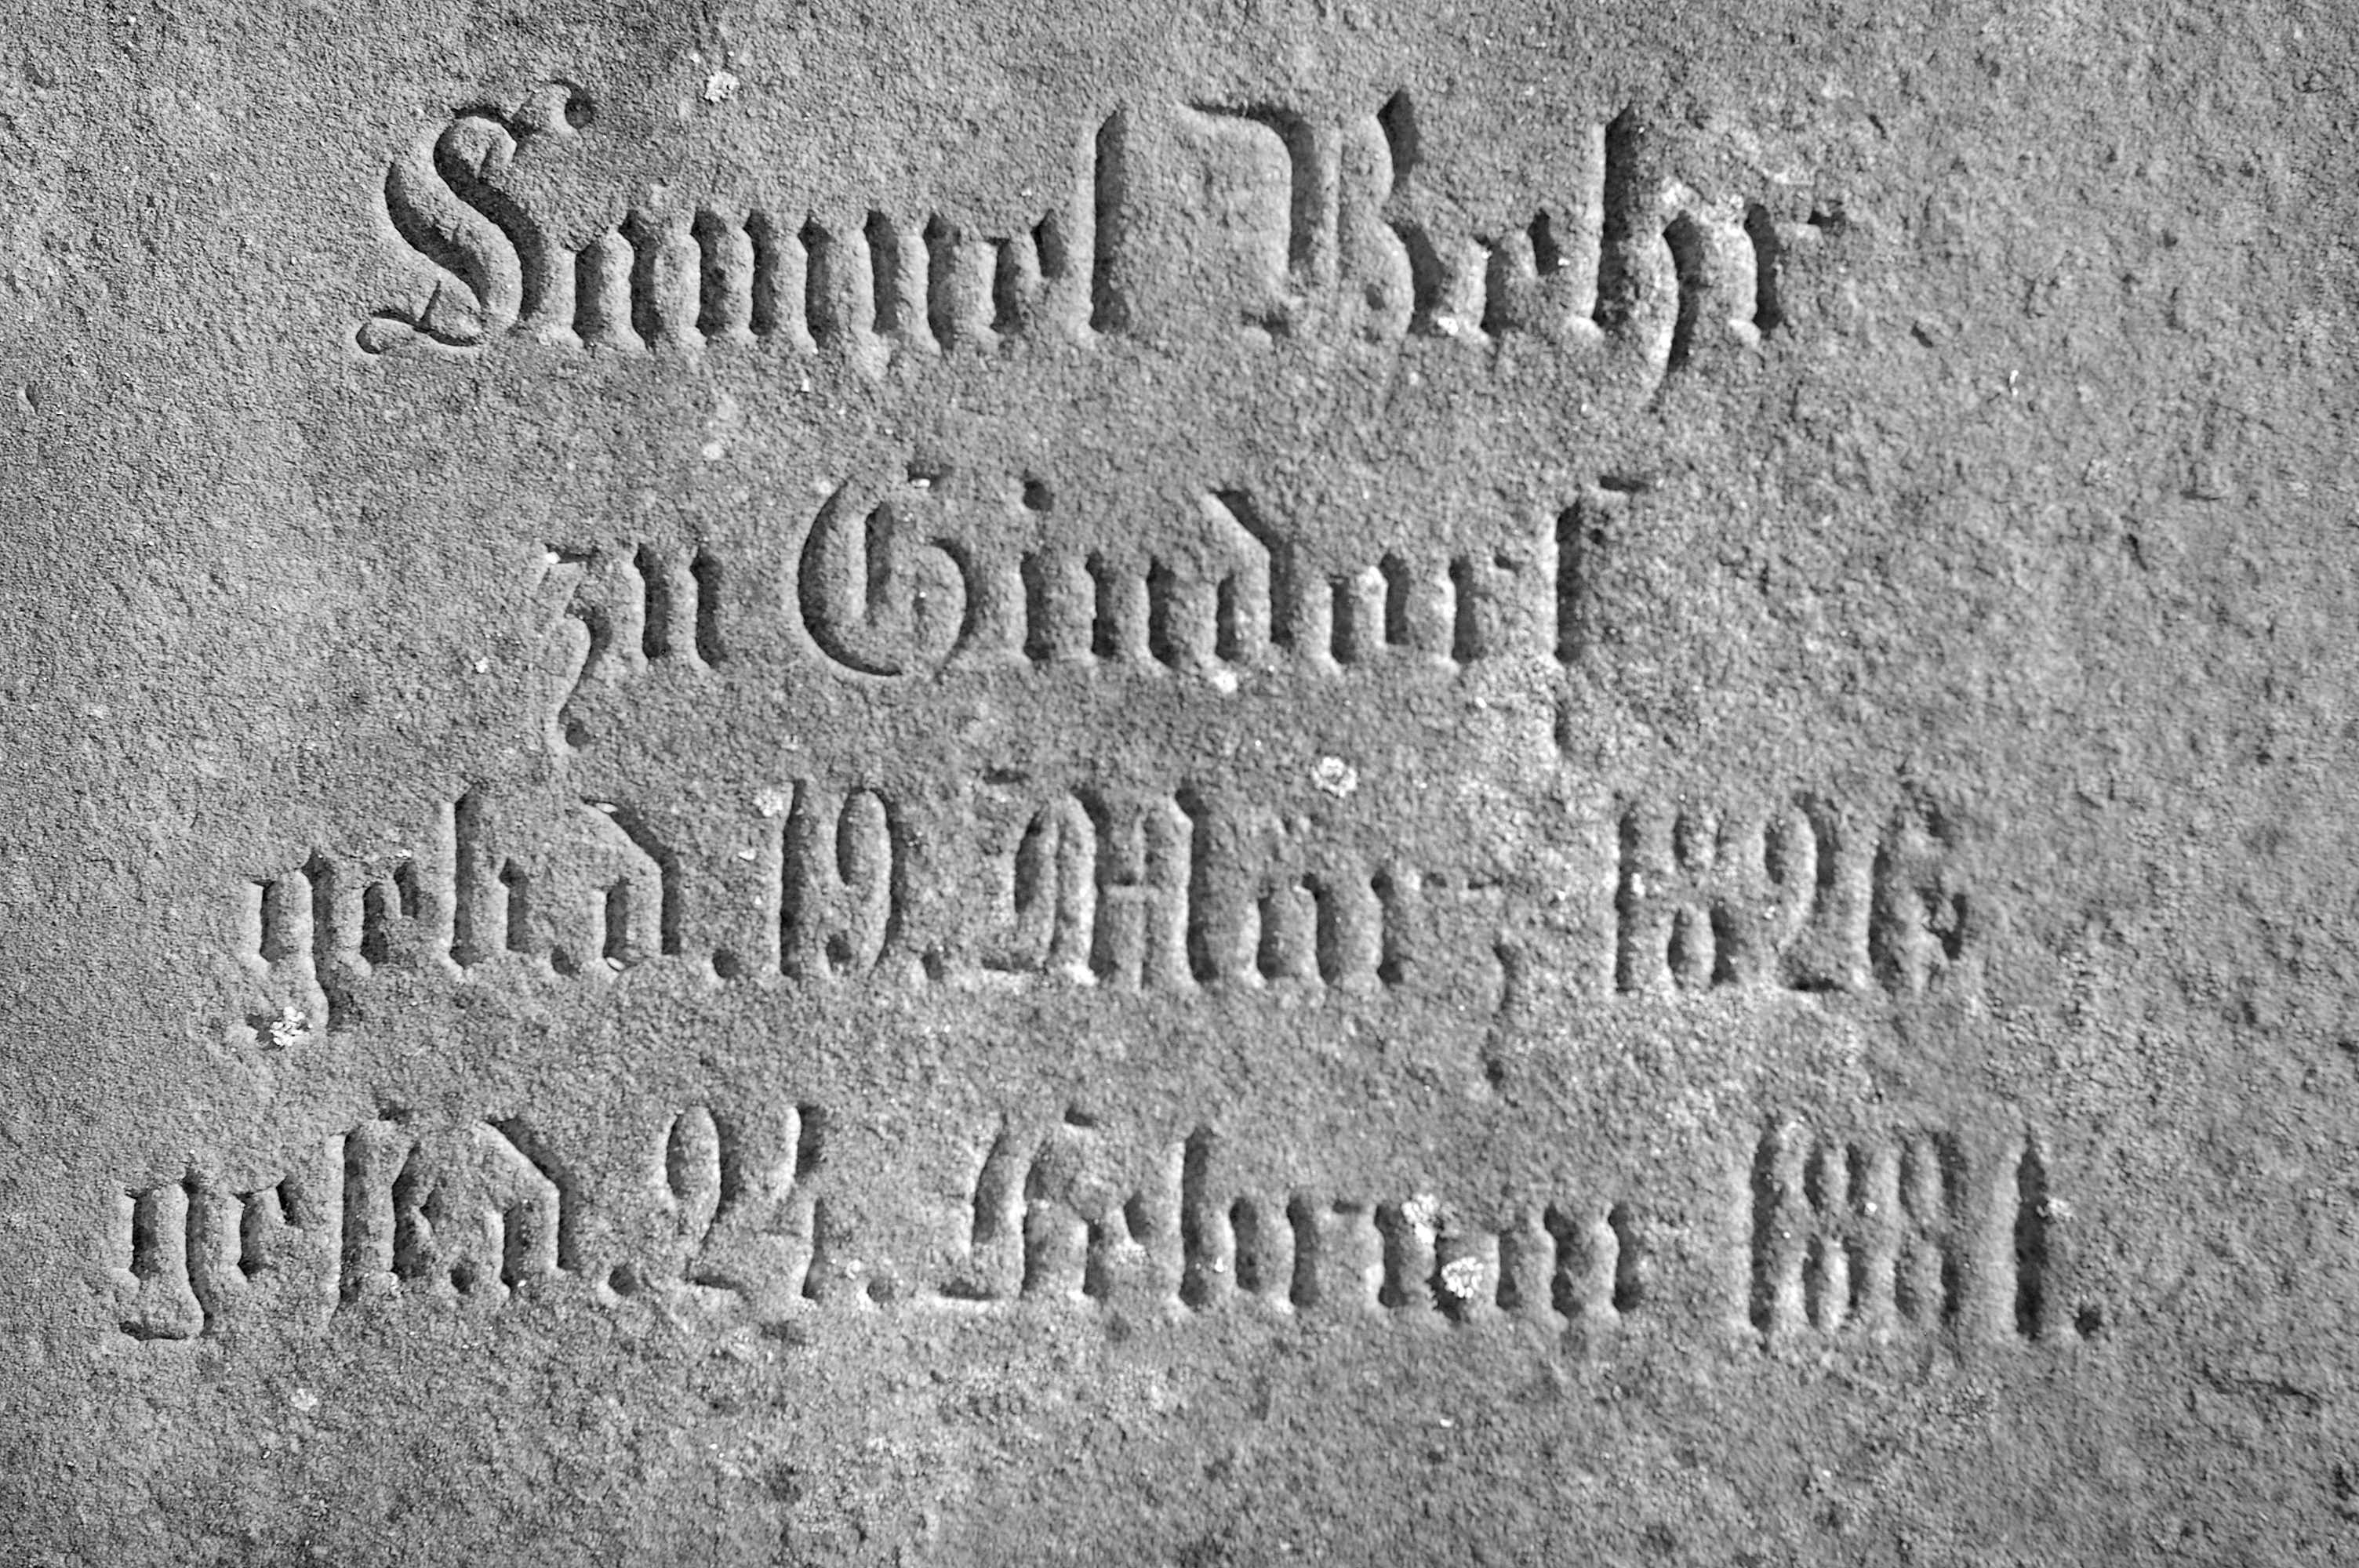 Samuel Behr
zu Gindorf
geb. d. 19. März 1826
gest. d. 24. Februar 1881.